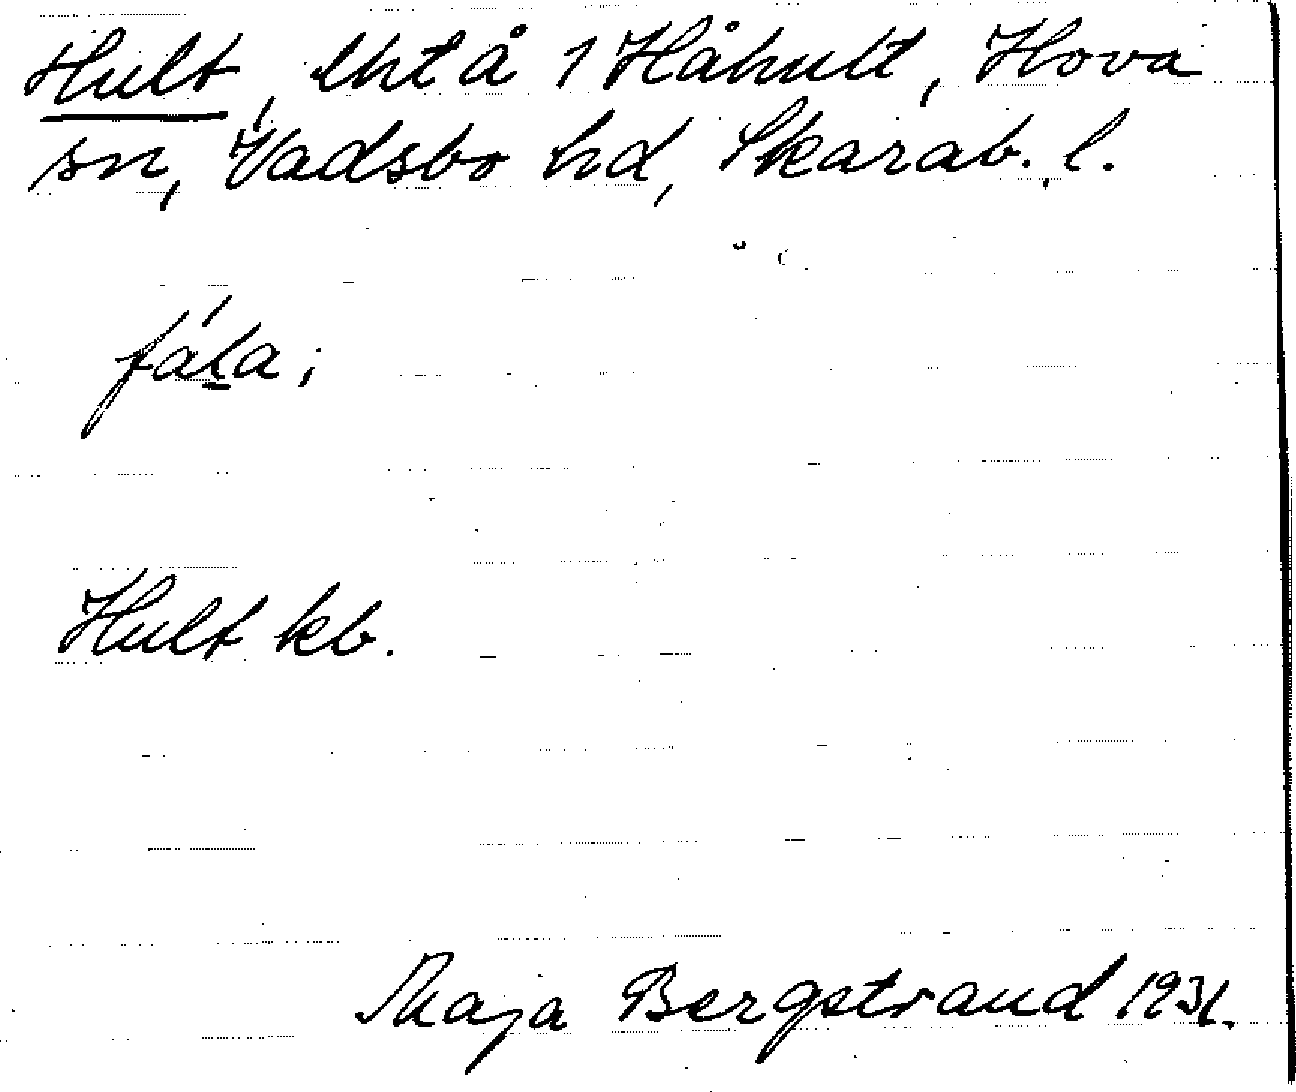 Hult, lht å 1 Håhult, Hova
sn, Vadsbo hd, Skarab. l.
Hult kb.
Maja Bergstrand 1931.